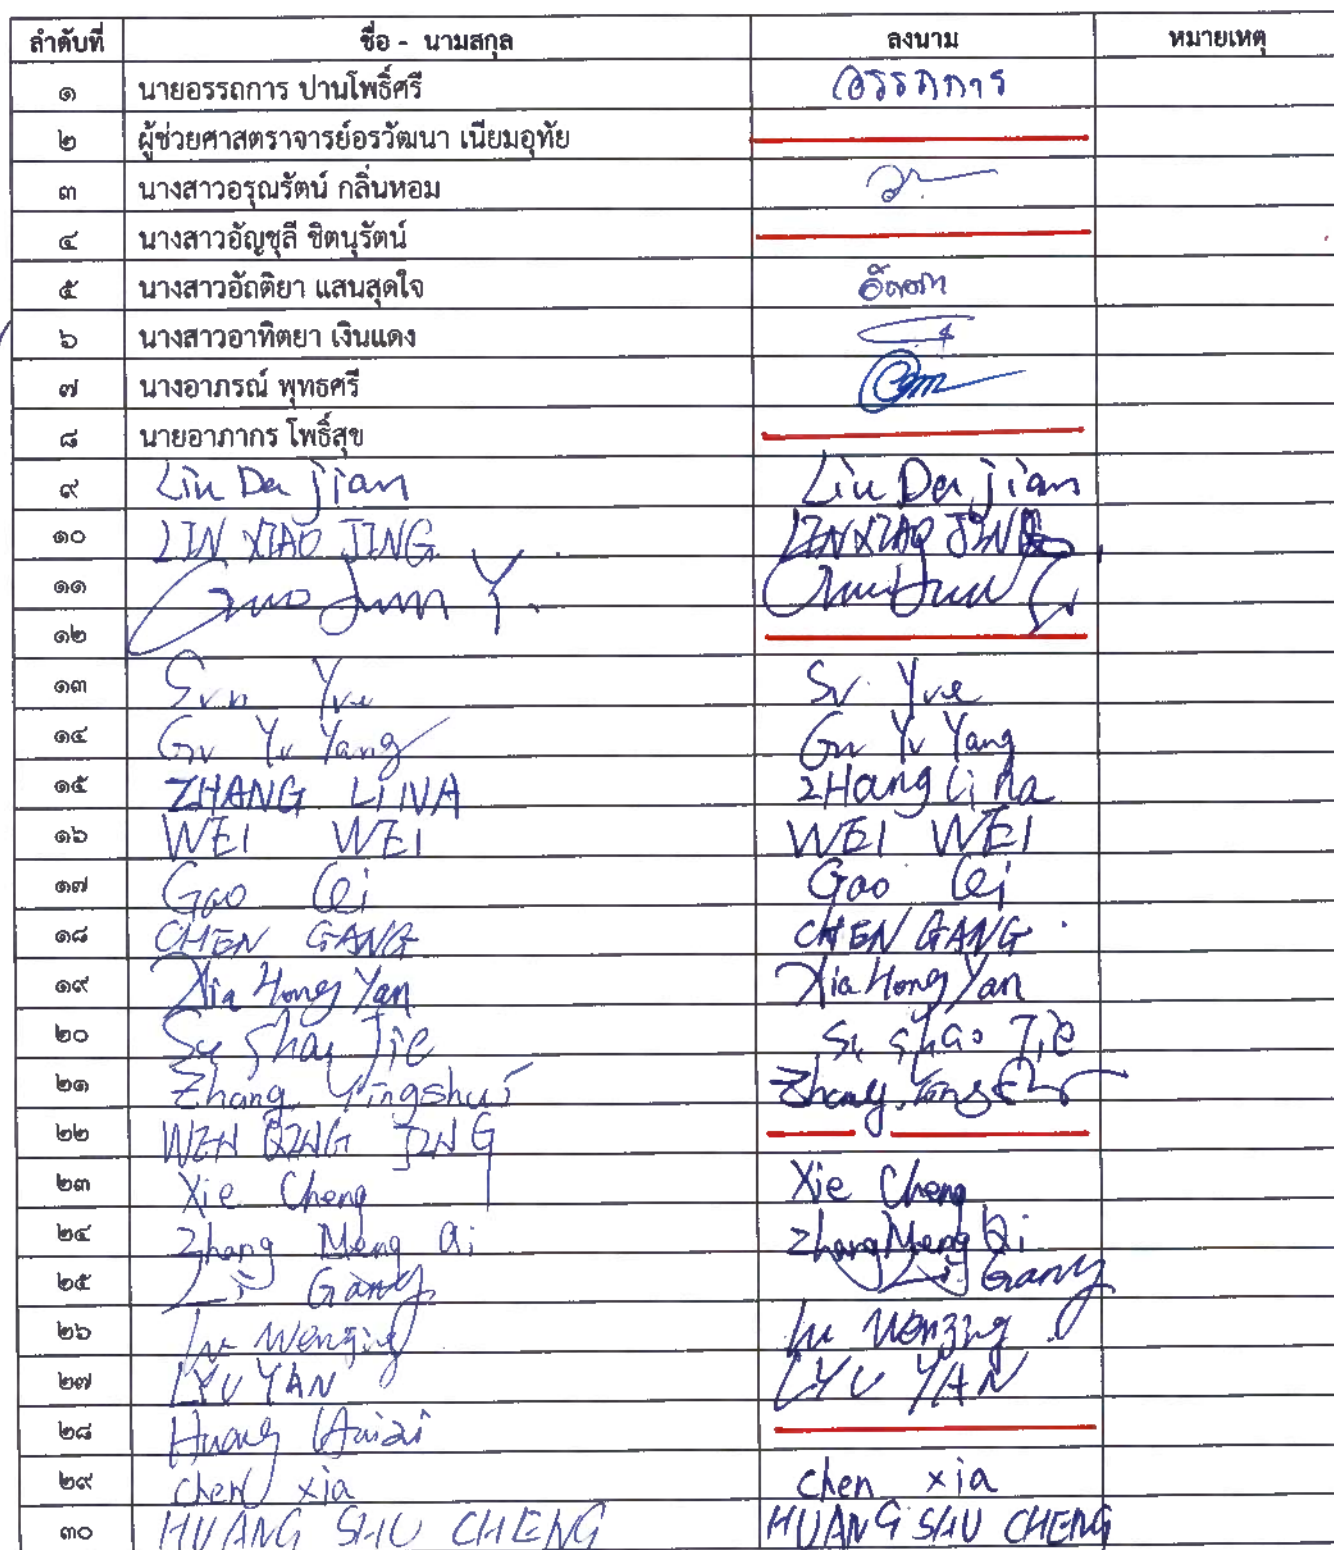 ลำดับที่ ชื่อ - นามสกุล ลงนาม หมายเหตุ
๑ นายอรรถการ ปานโพธิ์ศรี อรรถการ
๒ ผู้ช่วยศาสตราจารย์อรวัฒนา เนียมอุทัย
๓ นางสาวอรุณรัตน์ กลิ่นหอม
๔ นางสาวอัญชุลี ชิตนุรัตน์
๕ นางสาวอัถติยา แสนสุดใจ
๖ นางสาวอาทิตยา เงินแดง
๗ นางอาภรณ์ พุทธศรี
๘ นายอาภากร โพธิ์สุข
๙ Liu Da jian Liu Da jian
๑๐ LIN XIAO JING LIN XIAO JING
๑๑ Guo Jun Y.
๑๒
๑๓ Sun Yue Su Yue
๑๔ Gu Yu Yang Gu Yu Yang
๑๕ ZHANG LINA ZHang Li na
๑๖ WEI WEI WEI WEI
๑๗ Gao Qi Gao Qi
๑๘ CHEN GANG CHEN GANG
๑๙ Xia Hong Yan Xia Hong Yan
๒๐ Su Shao Jie Su Shao Jie
๒๑ Zhang Yingshui Zhang
๒๒ WEN QING JING
๒๓ Xie Cheng Xie Cheng
๒๔ Zhang Meng Qi Zhang Meng Qi
๒๕ Li Gang Li Gang
๒๖ Lu Wenjing Lu Wenjing
๒๗ LYU YAN LYU YAN
๒๘ Huang
๒๙ chen xia chen xia
๓๐ HUANG SHU CHENG HUANG SHU CHENG